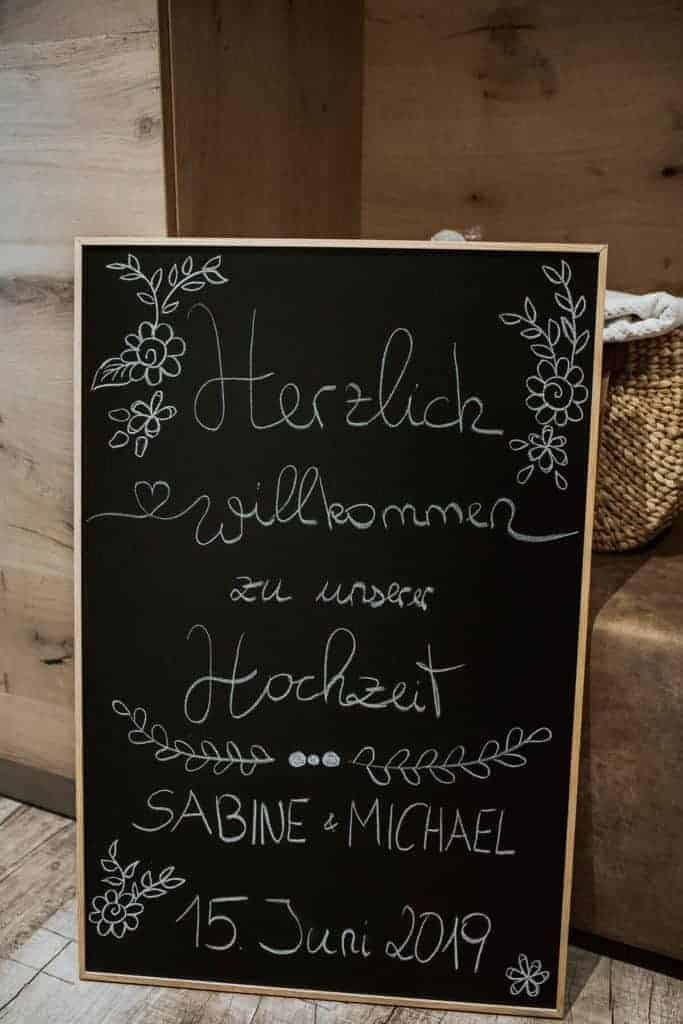 Herzlich
willkommen
zu unserer
Hochzeit
SABINE & MICHAEL
15. Juni 2019